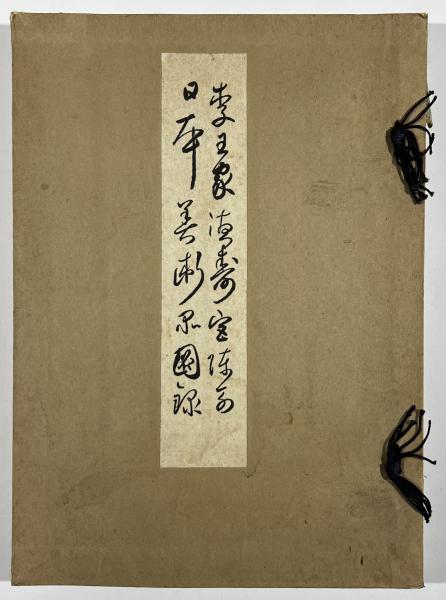 李王家徳寿宮陳列
日本美術品図録